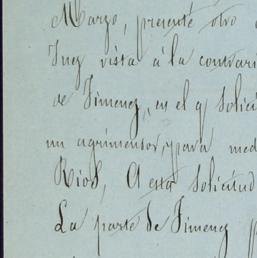 Marzo, presenté otro
Juez vista á la contrari
de Jimenez, en el q solici
un agrimensor, para med
Rios, A esta solicitud
La parte de Jimenez